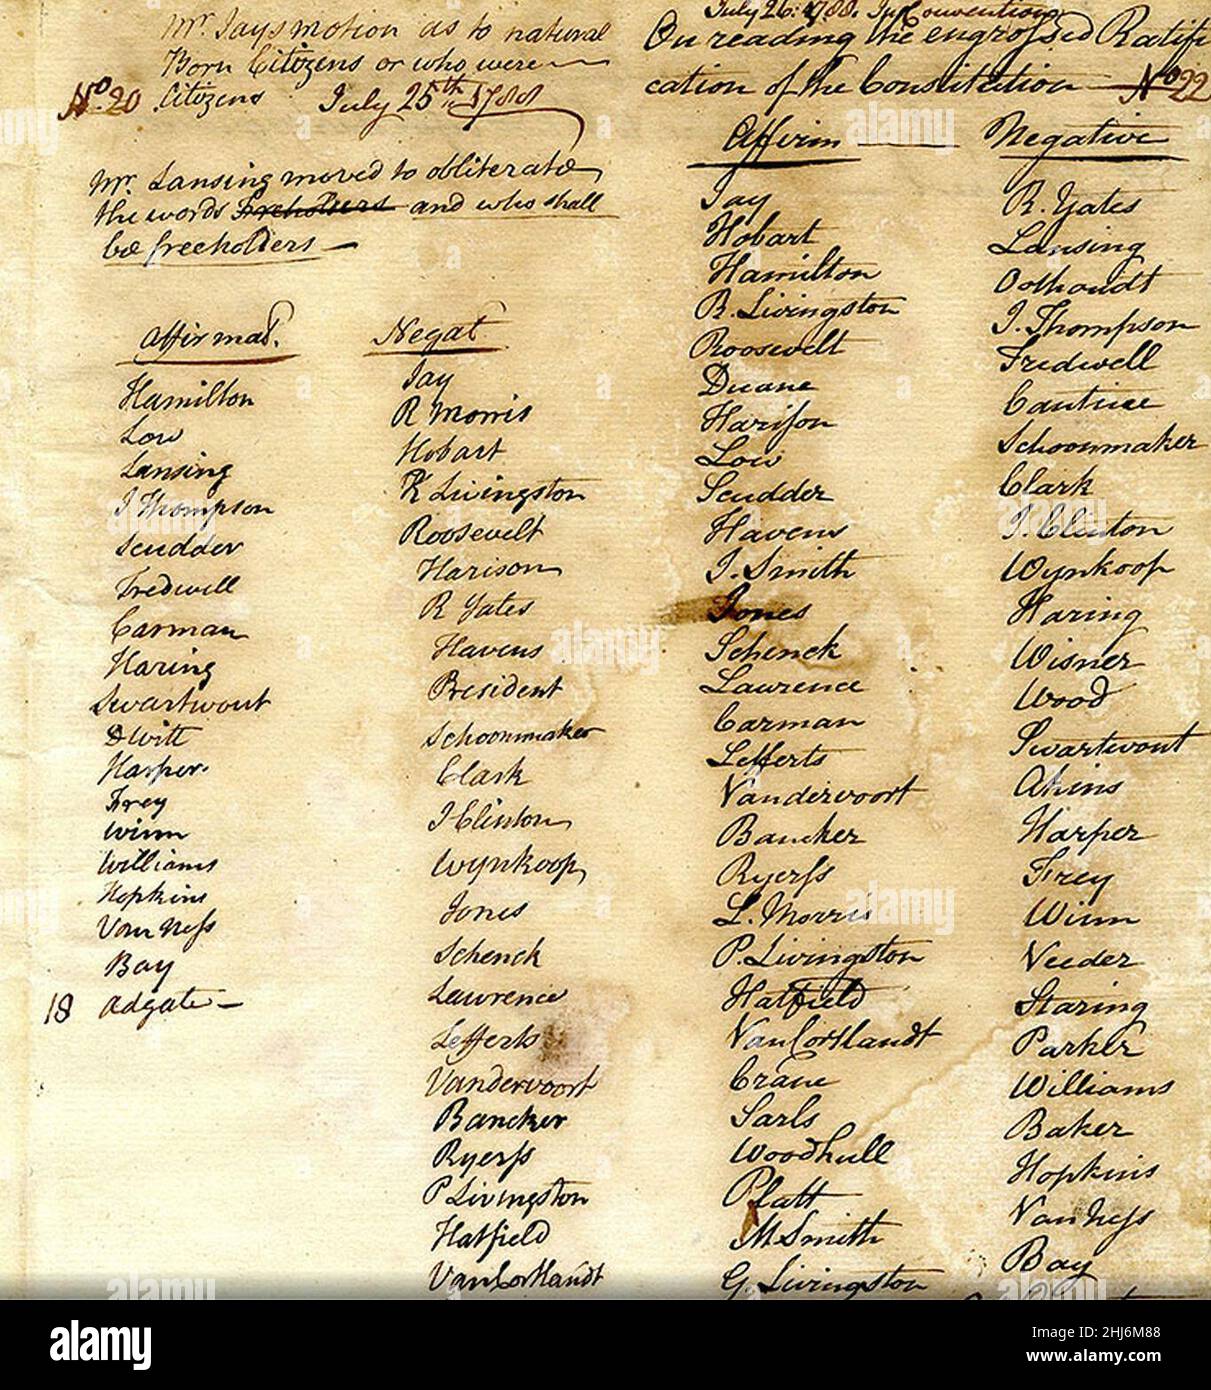 Mr. Jays motion as to natural
Born Citizens or who were
No. 20 Citizens July 25th 1788
Mr Lansing moved to obliterate
the words Freeholders and who shall
be freeholders
Affirmat. Negat
Hamilton
Low
Lansing
J Thompson
Scudder
Tredwell
Carman
Haring
Swartwout
DWitt
Harper
Frey
Winn
Williams
Hopkins
Van Ness
Bay
18 Adgate
Jay
R Morris
Hobart
R Livingston
Roosevelt
Harison
R Yates
Havens
President
Schoonmaker
Clark
J Clinton
Wynkoop
Jones
Schenck
Lawrence
Lefferts
Vandervoort
Bancker
Ryerss
P Livingston
Hatfield
Van Cortlandt
July 26: 1788. In Convention
On reading the engrossed Ratifi
cation of the Constitution No 22
Affirm Negative
Jay
Hobart
Hamilton
R. Livingston
Roosevelt
Duane
Harison
Low
Scudder
Havens
J. Smith
Jones
Schenck
Lawrence
Carman
Lefferts
Vandervoort
Bancker
Ryerss
L. Morris
P. Livingston
Hatfield
Van Cortlandt
Crane
Sarls
Woodhull
Platt
M Smith
G. Livingston
R. Yates
Lansing
Oothoudt
J. Thompson
Tredwell
Cantine
Schoonmaker
Clark
J. Clinton
Wynkoop
Haring
Wisner
Wood
Swartwout
Akins
Harper
Frey
Winn
Veeder
Staring
Parker
Williams
Baker
Hopkins
Van Ness
Bay
alamy
Image ID: 2HJ6M88
www.alamy.com